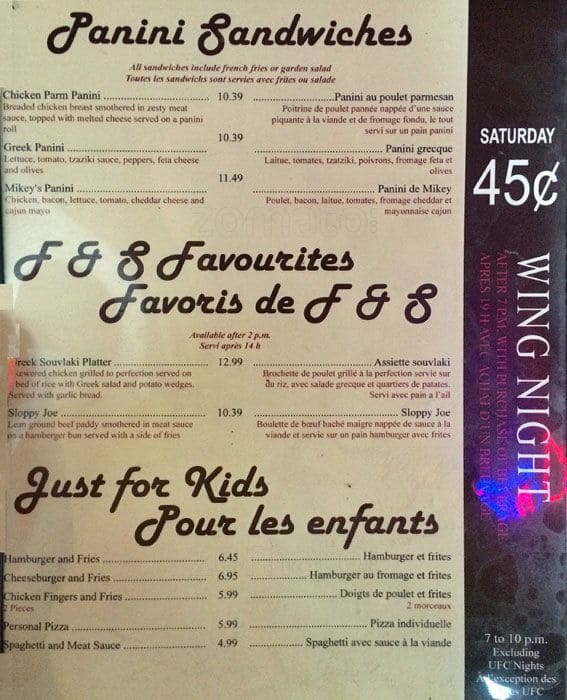 Panini Sandwiches
All sandwiches include french fries or garden salad
Toutes les sandwichs sont servies avec frites ou salade
Chicken Parm Panini 10.39 Panini au poulet parmesan
Breaded chicken breast smothered in zesty meat
sauce, topped with melted cheese served on a panini
roll
Poitrine de poulet pannée nappée d'une sauce
piquante à la viande et de fromage fondu, le tout
servi sur un pain panini
Greek Panini 10.39 Panini grecque
Lettuce, tomato, tzaziki sauce, peppers, feta cheese
and olives
Laitue, tomates, tzatziki, poivrons, fromage feta et
olives
Mikey's Panini 11.49 Panini de Mikey
Chicken, bacon, lettuce, tomato, cheddar cheese and
cajun mayo
Poulet, bacon, laitue, tomates, fromage cheddar et
mayonnaise cajun
F & S Favourites
Favoris de F & S
Available after 2 p.m.
Servi après 14 h
Souvlaki Platter 12.99 Assiette souvlaki
chicken grilled to perfection served on
bed of rice with Greek salad and potato wedges.
Served with garlic bread.
Brochette de poulet grillé à la perfection servie sur
du riz, avec salade grecque et quartiers de patates.
Servi avec pain a l'ail
Sloppy Joe 10.39 Sloppy Joe
Lean ground beef paddy smothered in meat sauce
on a hamberger bun served with a side of fries
Boulette de bœuf haché maigre nappée de sauce à la
viande et servie sur un pain hamburger avec frites
Just for Kids
Pour les enfants
Hamburger and Fries 6.45 Hamburger et frites
Cheeseburger and Fries 6.95 Hamburger au fromage et frites
Chicken Fingers and Fries 5.99 Doigts de poulet et frites
2 Pieces 2 morceaux
Personal Pizza 5.99 Pizza individuelle
Spaghetti and Meat Sauce 4.99 Spaghetti avec sauce à la viande
SATURDAY
45¢
WING NIGHT
AFTER 7 P.M. WITH PURCHASE OF
APRES 19 H AVEC ACHAT D'UN
7 to 10 p.m.
Excluding
UFC Nights
À l'exception des
UFC